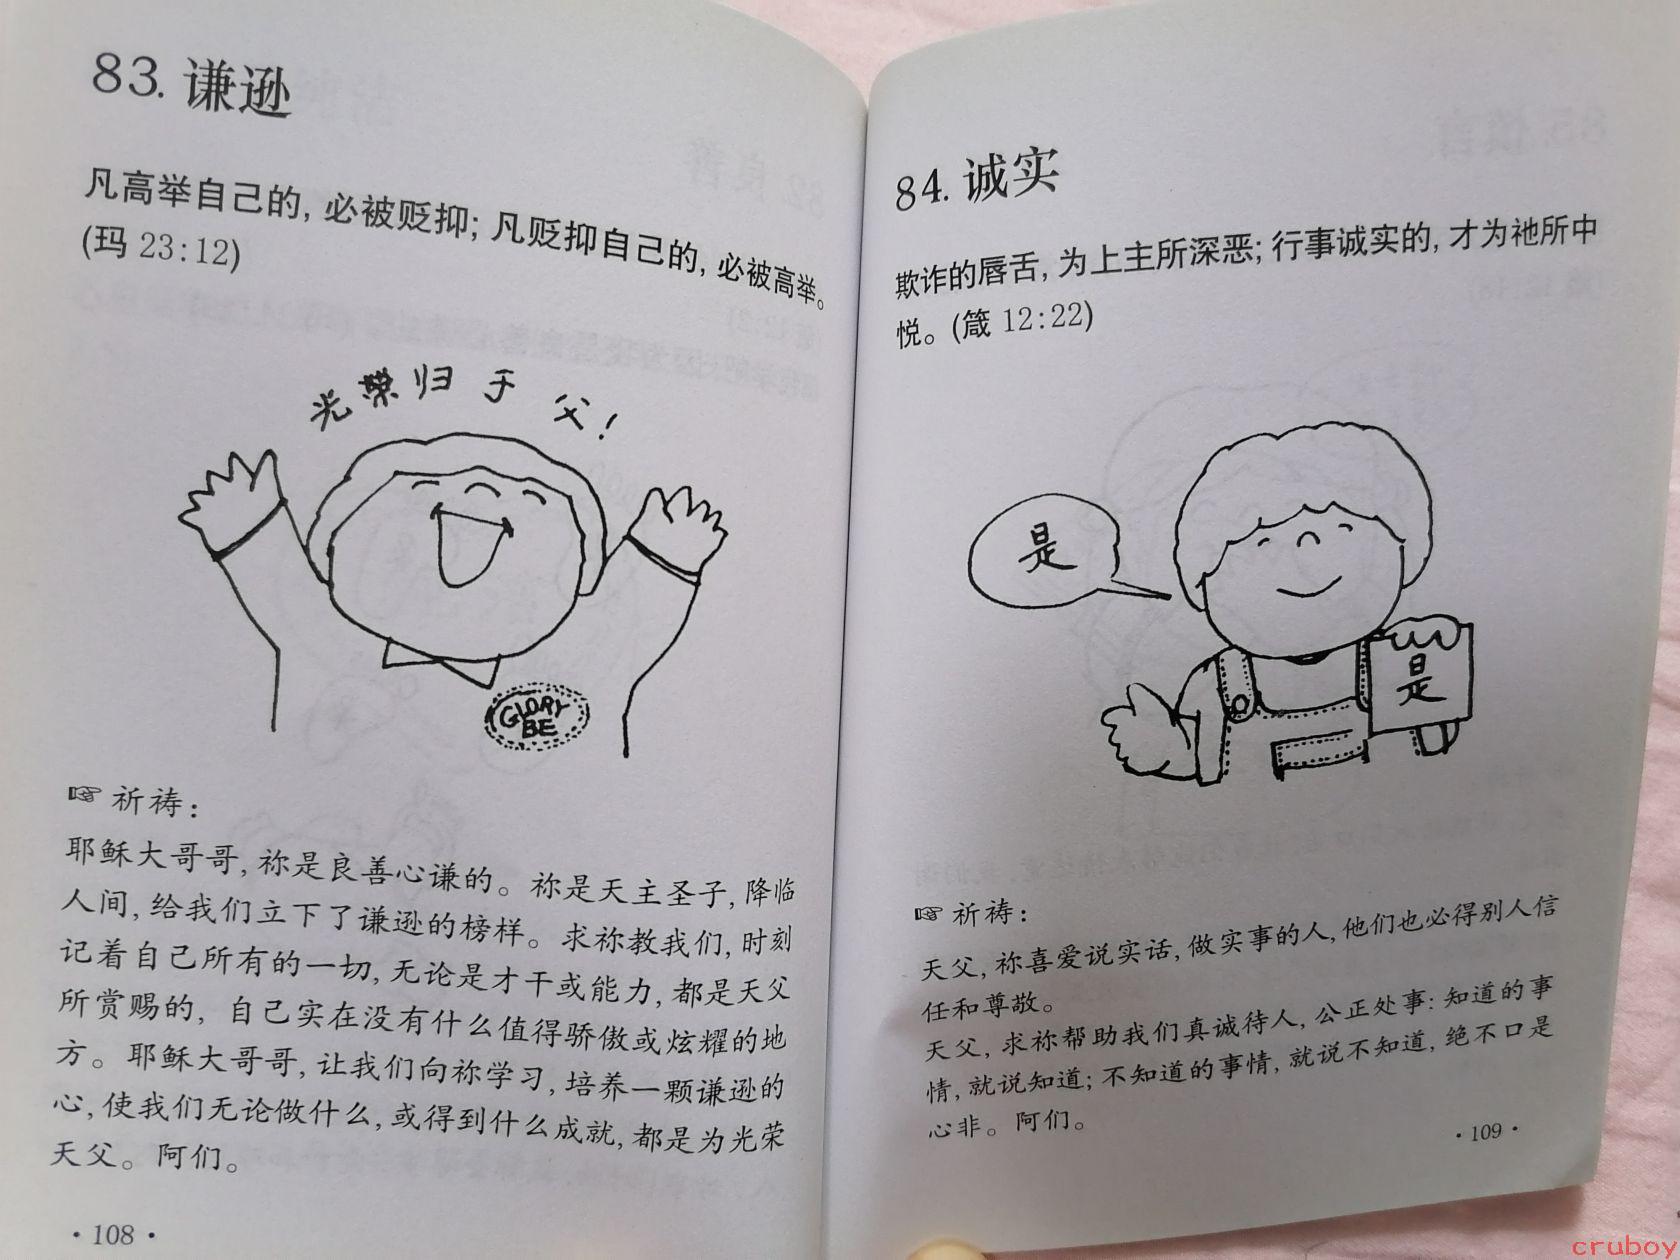 83. 谦逊
凡高举自己的, 必被贬抑; 凡贬抑自己的, 必被高举。
(玛 23:12)
光荣归于父!
GLORY
BE
☞ 祈祷:
耶稣大哥哥, 祢是良善心谦的。祢是天主圣子, 降临
人间, 给我们立下了谦逊的榜样。求祢教我们, 时刻
记着自己所有的一切, 无论是才干或能力, 都是天父
所赏赐的, 自己实在没有什么值得骄傲或炫耀的地
方。耶稣大哥哥, 让我们向祢学习, 培养一颗谦逊的
心, 使我们无论做什么, 或得到什么成就, 都是为光荣
天父。阿们。
· 108 ·
84. 诚实
欺诈的唇舌, 为上主所深恶; 行事诚实的, 才为祂所中
悦。(箴 12:22)
是
是
☞ 祈祷:
天父, 祢喜爱说实话, 做实事的人, 他们也必得别人信
任和尊敬。
天父, 求祢帮助我们真诚待人, 公正处事: 知道的事
情, 就说知道; 不知道的事情, 就说不知道, 绝不口是
心非。阿们。
· 109 ·
cruboy